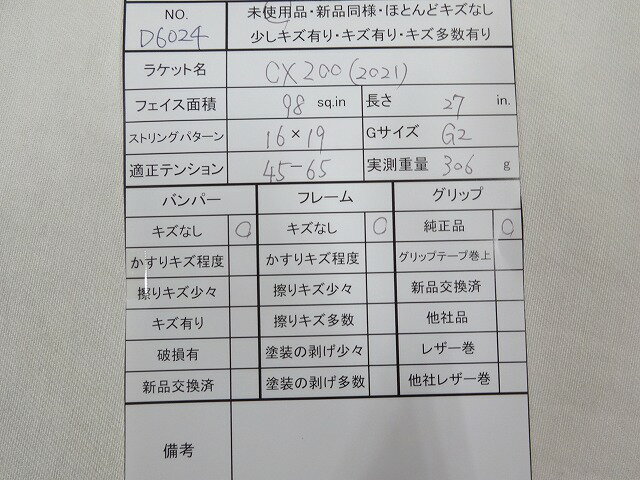 NO.
D6024
未使用品・新品同様・ほとんどキズなし
少しキズ有り・キズ有り・キズ多数有り
ラケット名 CX200(2021)
フェイス面積 98 sq.in 長さ 27 in.
ストリングパターン 16×19 Gサイズ G2
適正テンション 45-65 実測重量 306 g
バンパー フレーム グリップ
キズなし ○ キズなし ○ 純正品 ○
かすりキズ程度 かすりキズ程度 グリップテープ巻上
擦りキズ少々 擦りキズ少々 新品交換済
キズ有り 擦りキズ多数 他社品
破損有 塗装の剥げ少々 レザー巻
新品交換済 塗装の剥げ多数 他社レザー巻
備考